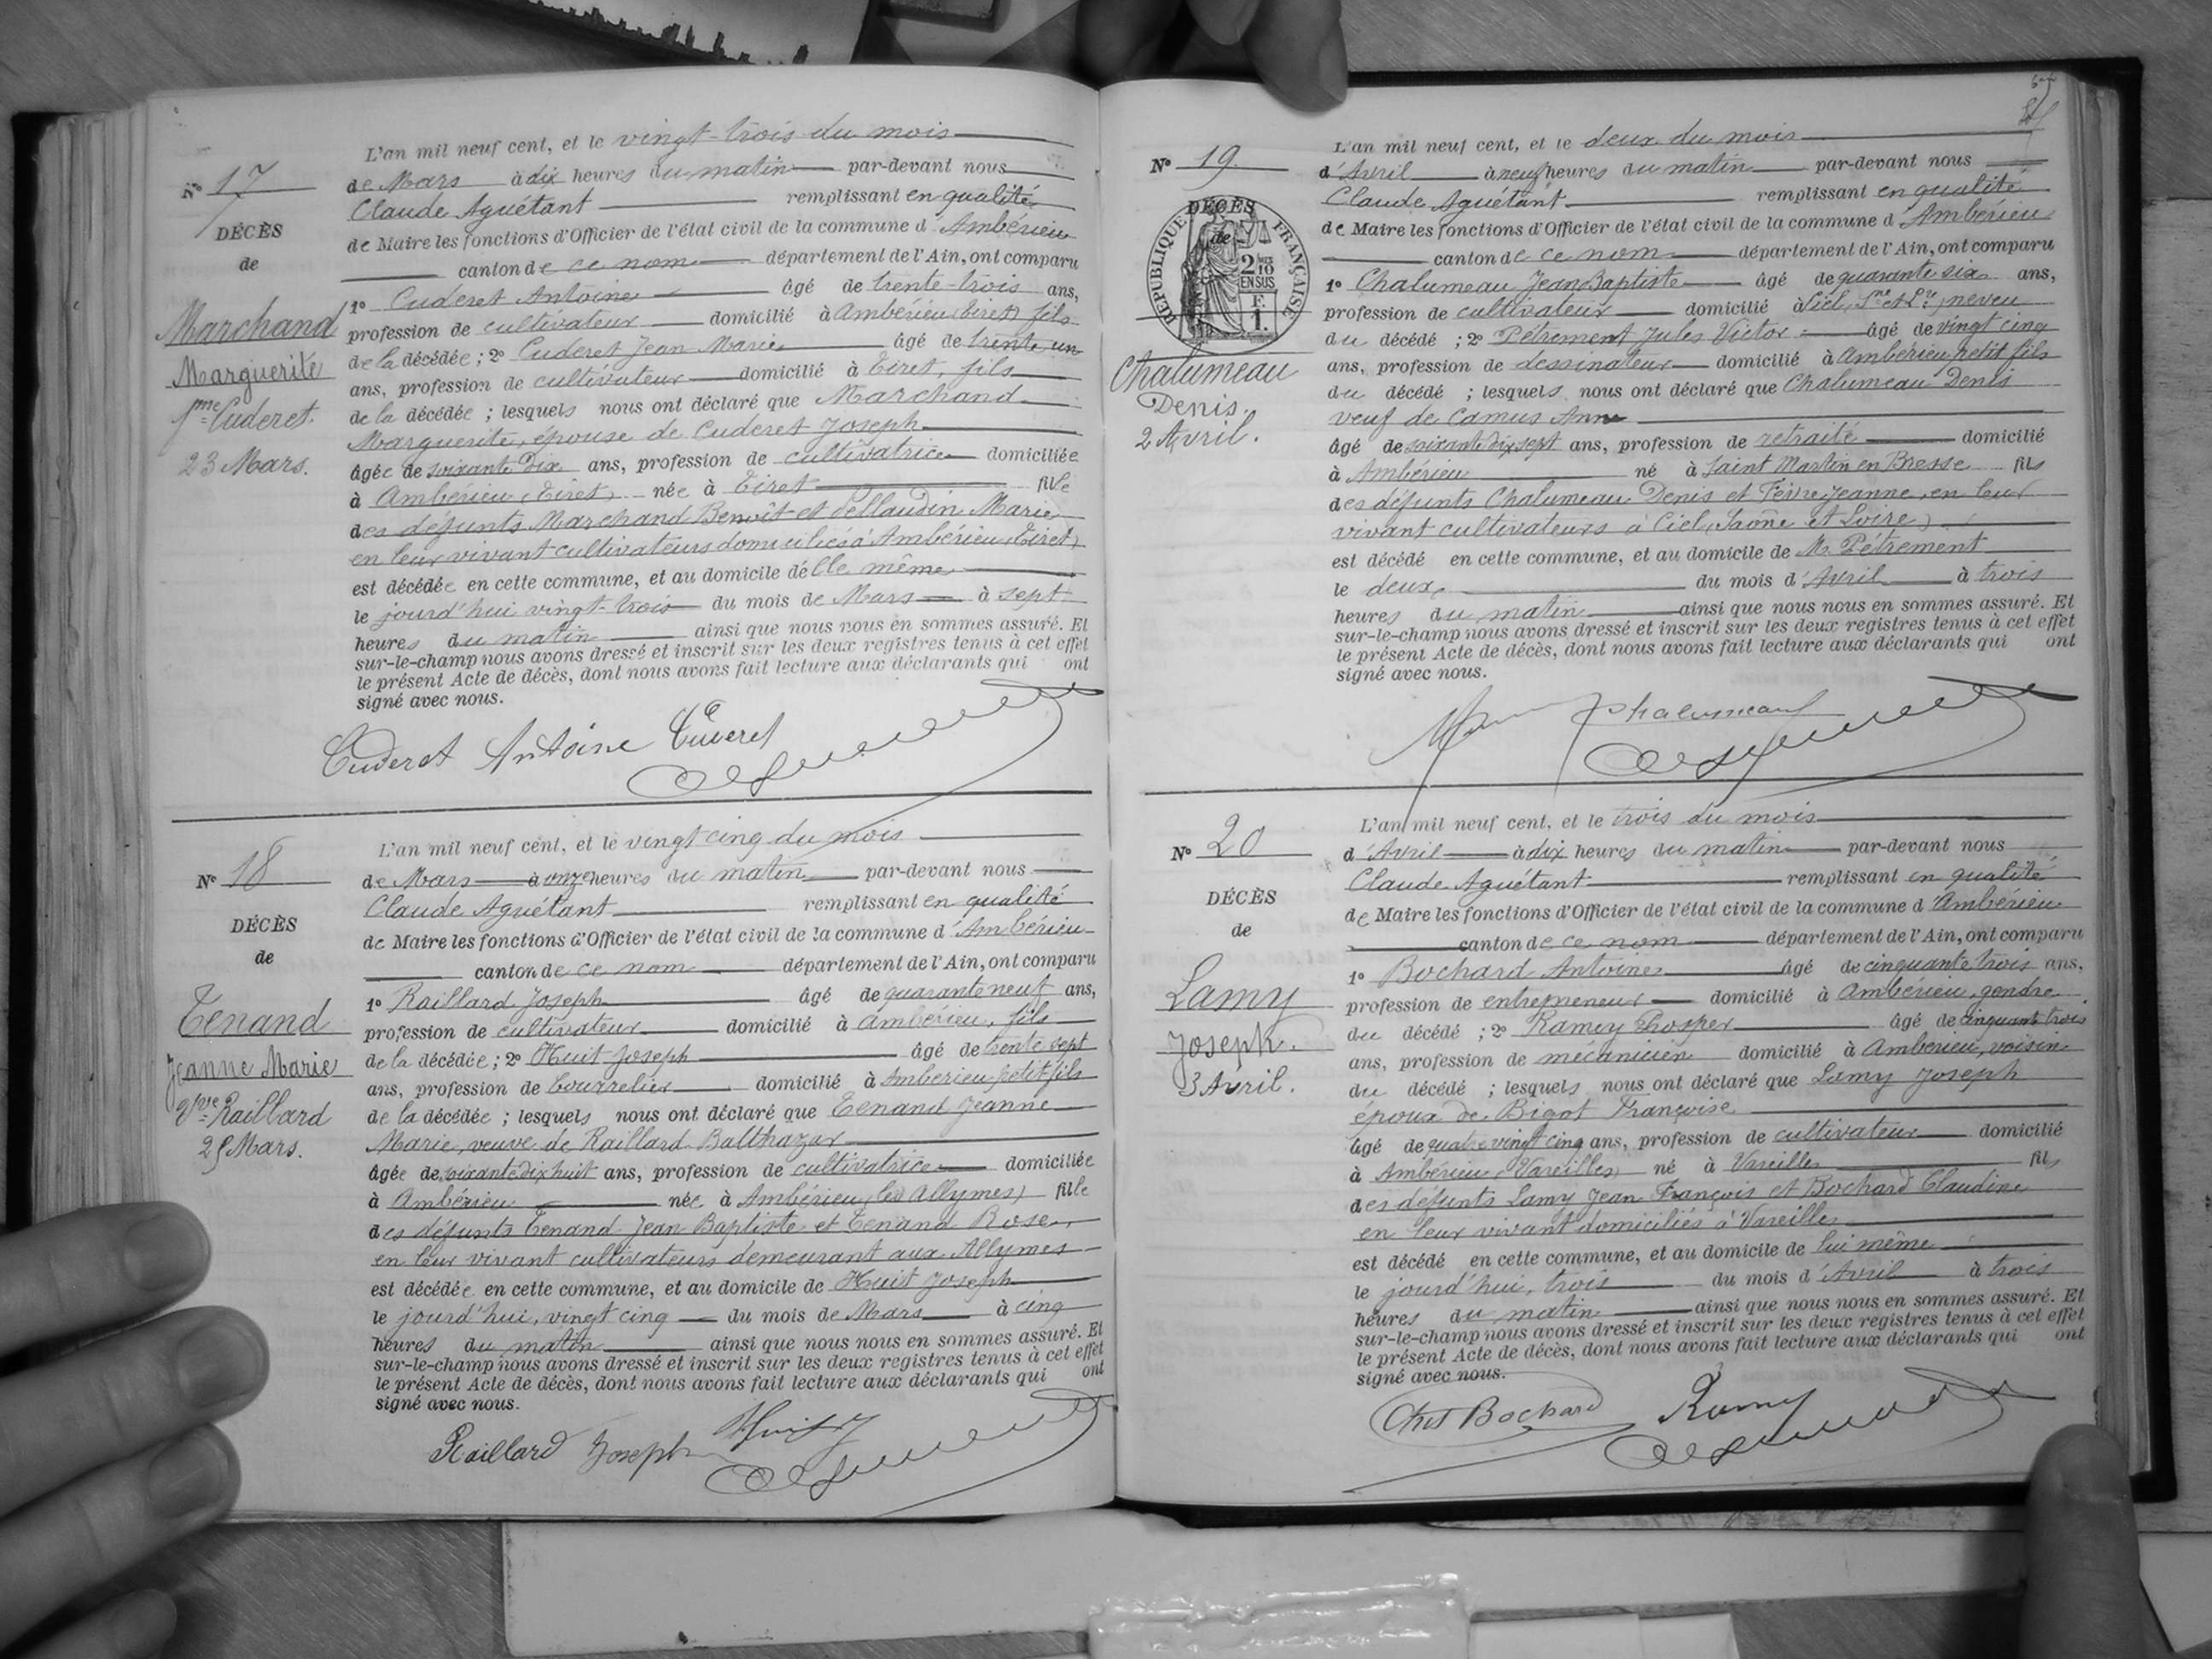 N° 17
DÉCÈS
de
Marchand
Marguerite
fme Cuderet.
23 Mars.
L'an mil neuf cent, et le vingt-trois du mois
de Mars à dix heures du matin par-devant nous
Claude Aguétant remplissant en qualité
de Maire les fonctions d'Officier de l'état civil de la commune d'Ambérieu
canton de ce nom département de l'Ain, ont comparu
1° Cuderet Antoine âgé de trente-trois ans,
profession de cultivateur domicilié à Ambérieu (Tiret) fils
de la décédée ; 2° Cuderet Jean Marie âgé de trente un
ans, profession de cultivateur domicilié à Tiret, fils
de la décédée ; lesquels nous ont déclaré que Marchand
Marguerite, épouse de Cuderet Joseph
âgée de soixante Dix ans, profession de cultivatrice domiciliée
à Ambérieu (Tiret) née à Tiret fille
des défunts Marchand Benoît et Pellaudin Marie
en leur vivant cultivateurs domiciliés à Ambérieu (Tiret)
est décédée en cette commune, et au domicile d'elle même
le jourd'hui vingt-trois du mois de Mars à sept
heures du matin ainsi que nous nous en sommes assuré. Et
sur-le-champ nous avons dressé et inscrit sur les deux registres tenus à cet effet
le présent Acte de décès, dont nous avons fait lecture aux déclarants qui ont
signé avec nous.
Cuderet Antoine Cuderet
N° 18
DÉCÈS
de
Tenand
Jeanne Marie
Vve Raillard
25 Mars.
L'an mil neuf cent, et le vingt cinq du mois
de Mars à onze heures du matin par-devant nous
Claude Aguétant remplissant en qualité
de Maire les fonctions d'Officier de l'état civil de la commune d'Ambérieu
canton de ce nom département de l'Ain, ont comparu
1° Raillard Joseph âgé de quarante neuf ans,
profession de cultivateur domicilié à Ambérieu, fils
de la décédée ; 2° Huit Joseph âgé de trente sept
ans, profession de bourrelier domicilié à Ambérieu petit fils
de la décédée ; lesquels nous ont déclaré que Tenand Jeanne
Marie, veuve de Raillard Balthazar
âgée de soixante dix huit ans, profession de cultivatrice domiciliée
à Ambérieu née à Ambérieu (les Allymes) fille
des défunts Tenand Jean Baptiste et Tenand Rose,
en leur vivant cultivateurs demeurant aux Allymes
est décédée en cette commune, et au domicile de Huit Joseph
le jourd'hui, vingt cinq du mois de Mars à cinq
heures du matin ainsi que nous nous en sommes assuré. Et
sur-le-champ nous avons dressé et inscrit sur les deux registres tenus à cet effet
le présent Acte de décès, dont nous avons fait lecture aux déclarants qui ont
signé avec nous.
Raillard Joseph Huit J
N° 19.
DÉCÈS
de
RÉPUBLIQUE FRANÇAISE
2/10 EN SUS
F. 1.
Chalumeau
Denis.
2 Avril.
L'an mil neuf cent, et le deux du mois
d'Avril à neuf heures du matin par-devant nous
Claude Aguétant remplissant en qualité
de Maire les fonctions d'Officier de l'état civil de la commune d'Ambérieu
canton de ce nom département de l'Ain, ont comparu
1° Chalumeau Jean Baptiste âgé de quarante six ans,
profession de cultivateur domicilié à Ciel, Sne et Lre, neveu
du décédé ; 2° Pétrement Jules Victor âgé de vingt cinq
ans, profession de dessinateur domicilié à Ambérieu petit fils
du décédé ; lesquels nous ont déclaré que Chalumeau Denis
veuf de Camus Anne
âgé de soixante dix sept ans, profession de retraité domicilié
à Ambérieu né à Saint Martin en Bresse fils
des défunts Chalumeau Denis et Fèvre Jeanne, en leur
vivant cultivateurs à Ciel (Saône et Loire)
est décédé en cette commune, et au domicile de M. Pétrement
le deux, du mois d'Avril à trois
heures du matin ainsi que nous nous en sommes assuré. Et
sur-le-champ nous avons dressé et inscrit sur les deux registres tenus à cet effet
le présent Acte de décès, dont nous avons fait lecture aux déclarants qui ont
signé avec nous.
Chalumeau
N° 20
DÉCÈS
de
Lamy
Joseph.
3 Avril.
L'an mil neuf cent, et le trois du mois
d'Avril à dix heures du matin par-devant nous
Claude Aguétant remplissant en qualité
de Maire les fonctions d'Officier de l'état civil de la commune d'Ambérieu
canton de ce nom département de l'Ain, ont comparu
1° Bochard Antoine âgé de cinquante trois ans,
profession de entrepreneur domicilié à Ambérieu, gendre
du décédé ; 2° Ramey Prosper âgé de cinquante trois
ans, profession de mécanicien domicilié à Ambérieu, voisin
du décédé ; lesquels nous ont déclaré que Lamy Joseph
époux de Bigot Françoise
âgé de quatre vingt cinq ans, profession de cultivateur domicilié
à Ambérieu (Vareilles) né à Vareilles fils
des défunts Lamy Jean François et Bochard Claudine
en leur vivant domiciliés à Vareilles
est décédé en cette commune, et au domicile de lui même
le jourd'hui, trois du mois d'Avril à trois
heures du matin ainsi que nous nous en sommes assuré. Et
sur-le-champ nous avons dressé et inscrit sur les deux registres tenus à cet effet
le présent Acte de décès, dont nous avons fait lecture aux déclarants qui ont
signé avec nous.
Bochard Ramey